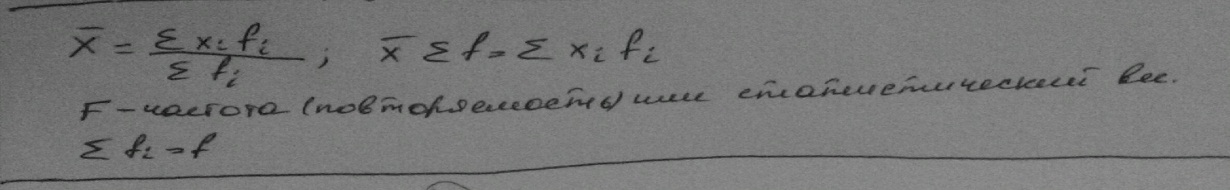 x̄ = Σ xi fi / Σ fi ; x̄ Σ f = Σ xi fi
F – частота (повторяемость) или статистический вес.
Σ fi = f